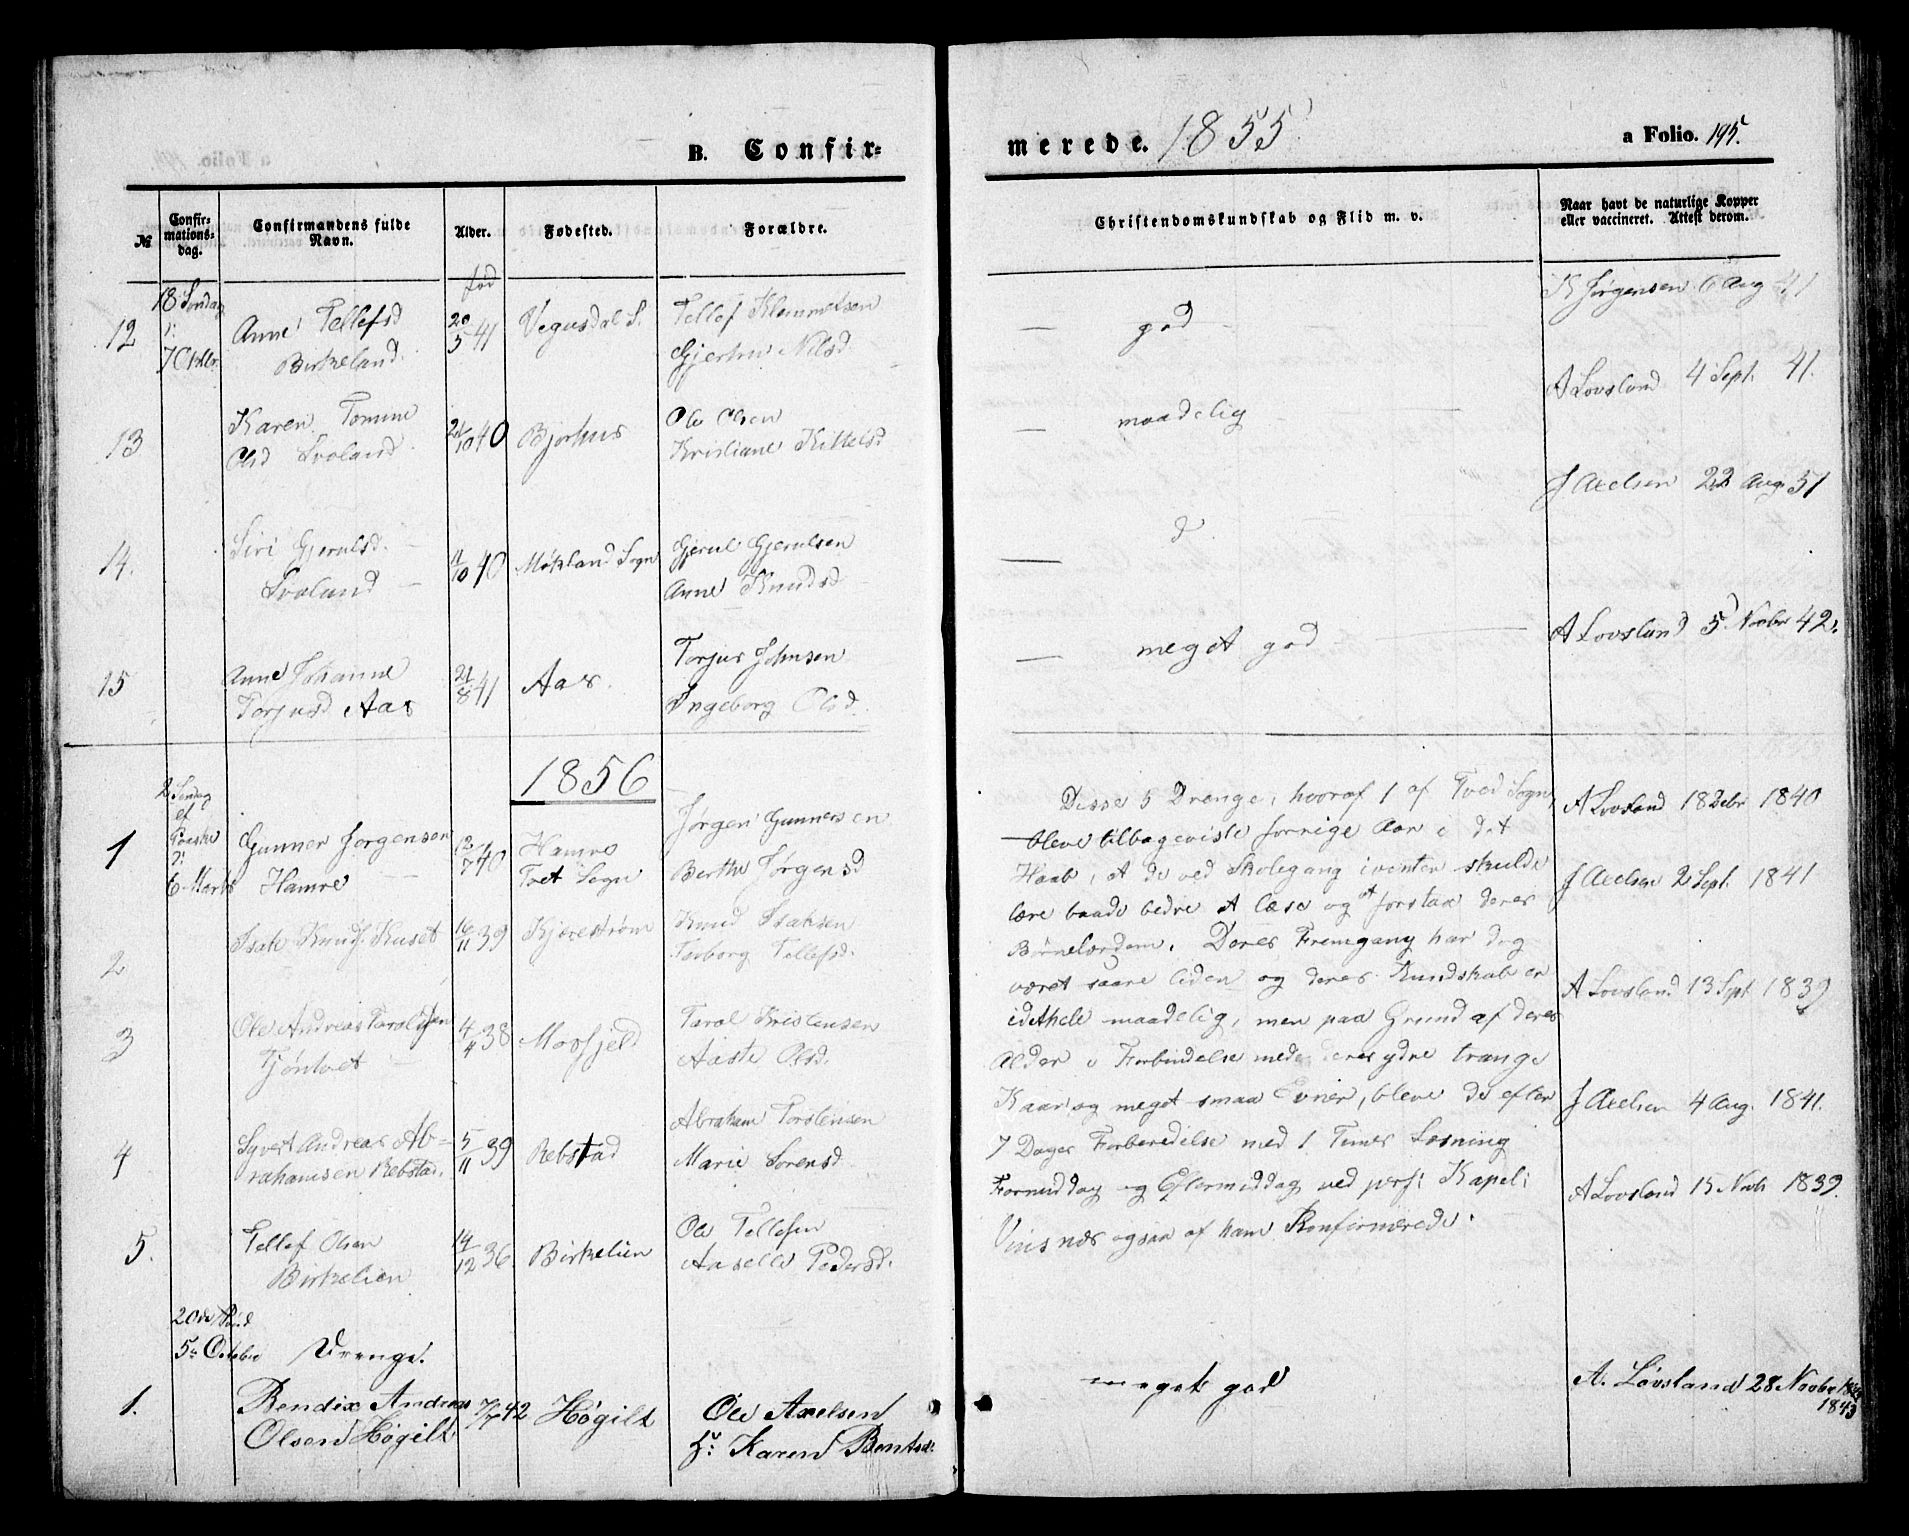 B. Confir-
merede. 1855
a Folio. 195.
№
Confir-
mations-
dag.
Confirmandens fulde
Navn.
Alder.
Fødested.
Forældre.
Christendomskundskab og Flid m. v.
Naar havt de naturlige Kopper
eller vaccineret. Attest derom.
fød
12
18 Søndag
7 Octbr
Anne Tellefsd
Birkeland.
20/5 41
Vegusdal S.
Tellef Klemmetsen
Nilsd
god
K Jørgensen 6 Aug 41
13
Karen Tomine
Olsd Svaland
21/10 40
Bjorhus
Ole Olsen
Kristiane Kittelsd
maadelig
A Lovsland 4 Sept. 41.
14.
Siri Gjerulsd.
Svaland
11/10 40
Møkland Sogn
Gjerul Gjerulsen
Anne Knudsd
d
J Axelsen 22 Aug. 51
15
Anne Johanne
Torjusd Aas
21/8 41
Aas.
Torjus Johnsen
Ingeborg Olsd.
meget god
A Lovsland 5 Novbr 42.
1856
1
2 Søndag
ef
Paaske
6 Marts
Gunner Jørgensen
Hamre
12/7 40
Hamre
Tvet Sogn
Jørgen Gunnersen
Berthe Jørgensd
A Lovsland 1840
2
Isak Knuds. Kuset
16/11 39
Kjørestrøm
Knud Isaksen
Torborg Tellefsd.
J Axelsen 2 Sept. 1841
3
Ole Andreas Taraldsen
Tjøntvet
4/4 38
Movfjeld
Taral Kristensen
Aaste Olsd.
A Lovsland 13 Sept 1839
4
Syvert Andreas Ab-
rahamsen Rebstad.
5/11 39
Rebstad
Abraham Torstensen
Marie Sorensd
J Axelsen 4 Aug. 1841.
5.
Tellef Olsen
Birkelien
14/12 36
Birkelien
Ole Tellefsen
Aaselle Pedersd.
A Lovsland 15 Novb 1839.
Disse 5 Drenge, hvoraf 1 af Tved Sogn,
bleve tilbageviste forrige Aar i det
Haab, at de ved Skolegang i vinter skulde
lære baade bedre at læse og at forstaa deres
Børnelærdom. Deres Fremgang har dog
været saare liden og deres Kundskab er
idethele maadelig, men paa Grund af deres
Alder i Forbindelse med deres ydre trange
Kaar og meget smaa Evner, bleve de efter
7 Dages Forberedelse med 1 Times Læsning
Formiddag og Eftermiddag ved pers: Kapel:
Vinsnes ogsaa af ham Konfirmerede.
5te October
Drenge.
1.
Bendix Andreas
Olsen Høgilt
7/7 42
Høgilt
Ole Axelsen
H: Karen Bentsd:
meget god
A. Løvsland 28 Novbr
1843